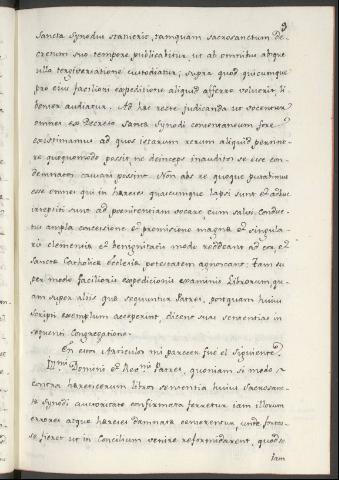 9
Sancta Synodus statuerit, tamquam sacrosanctum de
cretum suo tempore publicabitur, ut ab omnibus absque
ulla tergiversatione custodiatur; supra quod quicumque
pro eius faciliori expeditione aliquid afferre voluerit, li
benter audiatur. Ad hæc recte judicanda ut vocentur
omnes ex Decreto Sancta Synodi conventaneum fore
existimamus ad quos istarum rerum aliquid pertine-
re quoquomodo possit, ne deinceps inauditos se esse con-
demnatos causari possint. Non abs re quoque putabimus
esse omnes qui in hæreses quascumque lapsi sunt et adhuc
irretiti sunt ad poenitenciam vocare cum salvi conduc-
tus ampla concesione et promissione magnæ et singula-
ris clemenciæ et benignitatis modo reddeant ad cor, et
Sanctæ Catholicæ Ecclesiæ potestatem agnoscant: Jam su
per modo facilioris expedicionis examinis Librorum qu-
am super aliis quæ sequuntur Patres, postquam huius
scripti exemplum acceperint, dicent suas sentencias in
sequenti Congregatione.
En estos Articulos mi parecer fue el siguiente
Ill.mi Domini et Reu.mi Patres, quoniam si modo
contra hæreticorum libros sententia huius Sacrosan-
tæ Synodi auctoritate confirmata ferretur iam illorum
errores atque hæreses damnata censerentur unde fortas
se fieret ut in Concilium venire reformidarent, quod
tam